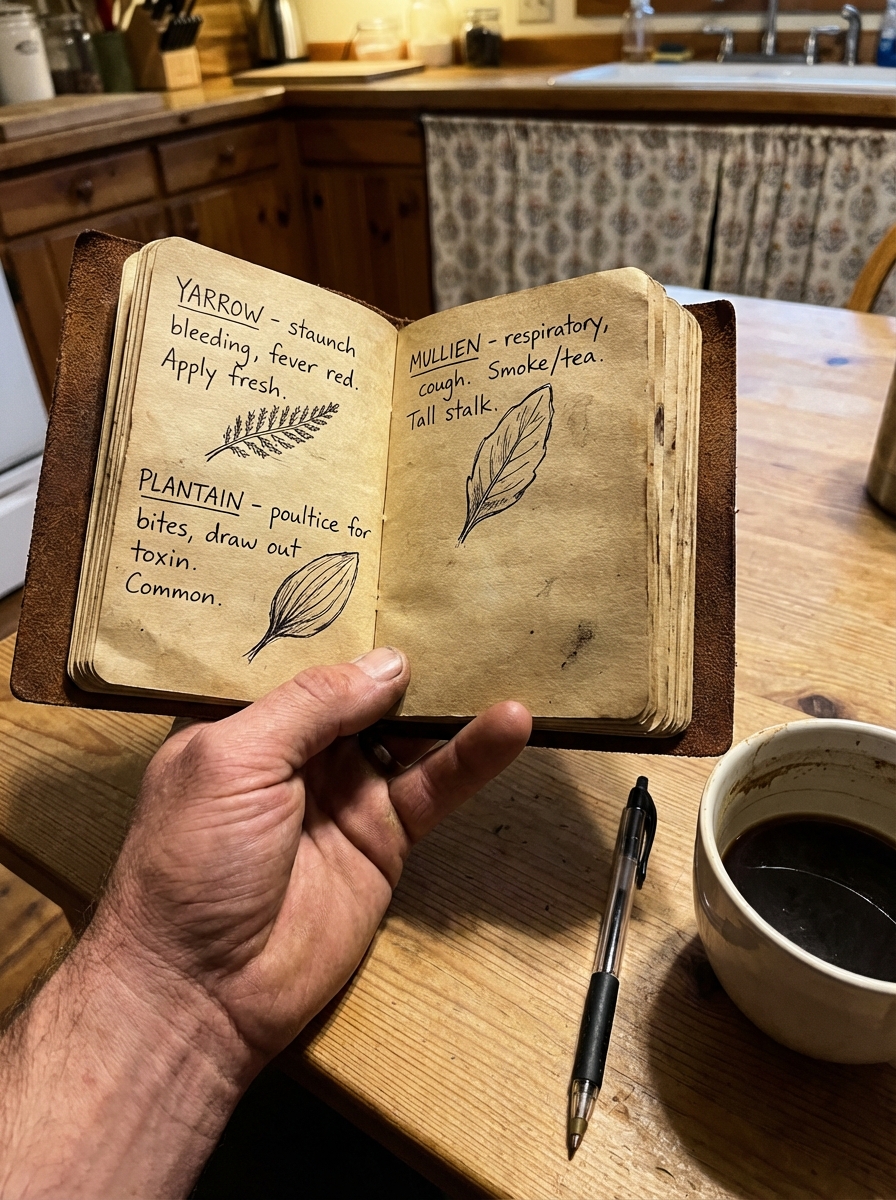 YARROW - staunch
bleeding, fever red.
Apply fresh.
PLANTAIN - poultice for
bites, draw out
toxin.
Common.
MULLIEN - respiratory,
cough. Smoke/tea.
Tall stalk.